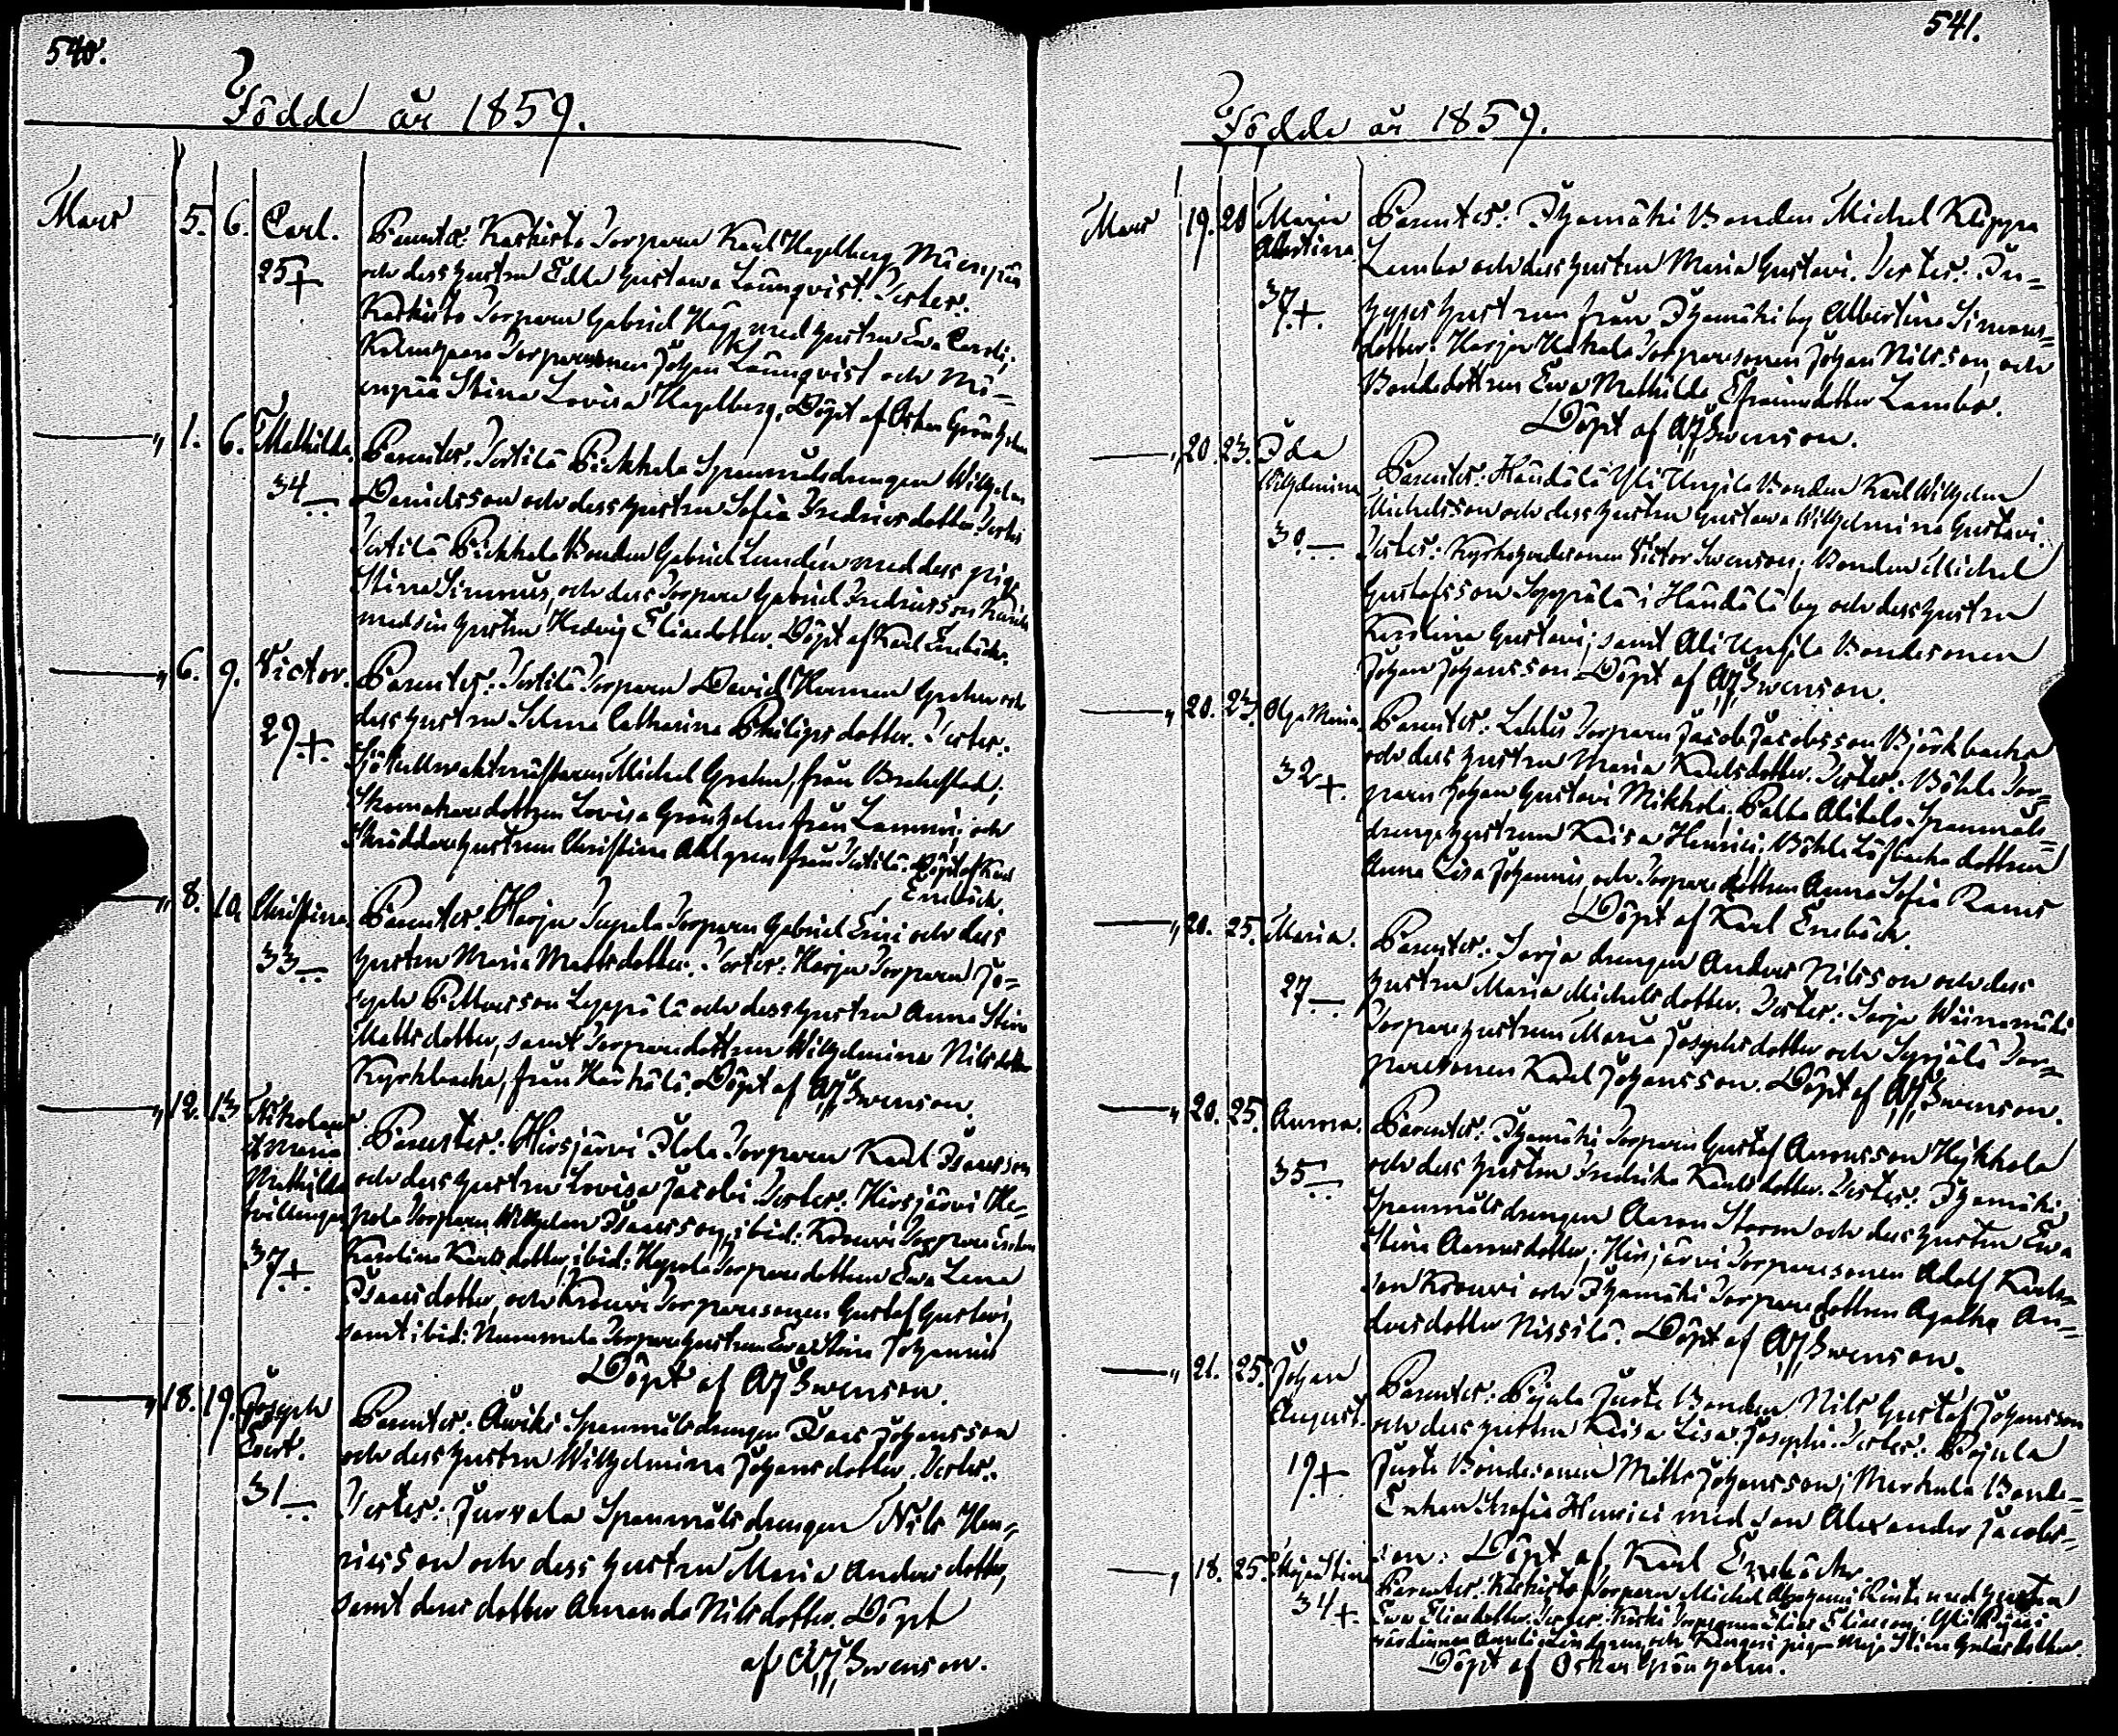 540.
Födde år 1859.
Mars 5. 6. Carl. 25 + Parentes: Karkisto Torparen Karl Hagelberg Mäenpää
och dess hustru Edla Gustava Löunqvist. Testes:
Karkisto Torparen Gabriel Hägg med hustru Eva Caroli;
Torparesonen Johan Löunqvist och Mä-
enpää Stina Lovisa Hagelberg. Döpt af Oskar Grönholm
" 1. 6. Mathilda. 34 — Parentes: Tertilä Pickhala Spanmålsdrängen Wilhelm
Davidsson och dess hustru Sofia Fredricsdotter Testes
Tertilä Pickhala Bonden Gabriel Lundén med dess piga
Stina Simonis, och dess Torpare Gabriel Fredricsson
med sin hustru Hedvig Eliaedotter. Döpt af Karl Enebäck.
" 6. 9. Victor. 29 + Parentes: Tertilä Torparen David Herman Grehn och
dess hustru Selma Catharina Philipsdotter. Testes:
Sjötullvaktmästaren Michel Grehn, från Brahestad;
Skomakaredottren Lovisa Grönholm från Lammi; och
Skräddarehustrun Christina Ahlgren från Tertilä. Döpt af Karl
Enebäck.
" 8. 10. Christina. 33 — Parentes: Harju Torparen Gabriel Erici och dess
hustru Maria Mattsdotter. Testes: Harju Torparen Jo-
seph Pettersson Leppälä och dess hustru Anna Stina
Mattsdotter, samt Torparedottren Wilhelmina Nilsdotter
Kyrkbacka, från Härkälä. Döpt af AJSwenson.
" 12. 13 Nikolaus
et Maria
Mathilda
tvillingar
37 + Parentes: Hirsjärvi Torparen Karl Isaacsson
och dess hustru Lovisa Jacobi. Testes: Hirsjärvi He-
pola Torparen Wilhelm Isaacsson, ibid: Krouvi Torpare Enkan
Karolina Karlsdotter, ibid: Hepola Torparedottren Eva Lena
Isaacsdotter, och Krouvi Torparesonen Gustaf Gustavi,
samt ibid: Nummela Torparehustrun Eva Stina Johannis
Döpt af AJSwenson.
" 18. 19. Joseph
Evert.
31 — Parentes: Awiki Spanmålsdrängen Isaac Johansson
och dess hustru Wilhelmina Johansdotter. Testes.
Testes: Jurvala Spanmålsdrängen Nils Hen-
ricsson och dess hustru Maria Andersdotter,
samt deras dotter Amanda Nilsdotter. Döpt
af AJSwenson.
541.
Födde år 1859.
Mars 19. 20 Maria
Albertina
37 + Parentes: Ihamäki Bonden Michel Klippa
Lembo och dess hustru Maria Gustavi. Testes: In-
hyses hustrun från Ihamäki by Albertina Simons-
dotter; Harju Hakala Torparesonen Johan Nilsson, och
Bondedottren Eva Mathilda Efraimsdotter Lembo.
Döpt af AJSwenson.
" 20. 23. Ida
Wilhelmina
30. — Parentes: Händälä Yli Uusila Bonden Karl Wilhelm
Michelsson och dess hustru Gustava Wilhelmina Gustavi.
Testes: Kyrkoherdesonen Victor Swenson; Bonden Michel
Gustafsson Seppälä i Händälä by och dess hustru
Karolina Gustavi; samt Ali Uusila Bondesonen
Johan Johansson. Döpt af AJSwenson.
" 20. 24. Olga Maria 32 + Parentes: Lahtis Torparen Jacob Jacobsson Björkbacka
och dess hustru Maria Karlsdotter. Testes: Böhle Tor-
paren Johan Gustavi Mikkola; Palka Alitalo Spanmåls-
drängehustrun Kaisa Henrici; Böhle Löfbacka dottren
Anna Lisa Johannis, och Torparedottren Anna Sofia Rams
Döpt af Karl Enebäck.
" 20. 25. Maria. 27 — Parentes: Sorja drängen Anders Nilsson och dess
hustru Maria Michelsdotter. Testes: Sorja Wäinämäki
Torparehustrun Maria Josephsdotter och Syrjälä Tor-
paresonen Karl Johansson. Döpt af AJSwenson.
" 20. 25. Anna. 35 — Parentes: Ihamäki Torparen Gustaf Aronsson Heikkola
och dess hustru Fredrika Karlsdotter. Testes: Ihamäki
Spanmålsdrängen Aaron Storm och dess hustru Eva
Stina Aaronsdotter; Hirsjärvi Torparesonen Adolf Karls-
son Krouvi och Ihamäki Torparedottren Agatha An-
dersdotter Nissilä. Döpt af AJSwenson.
" 21. 25. Johan
August.
19 + Parentes: Pajula Juste Bonden Nils Gustaf Johansson
och dess hustru Kaisa Lisa Josephi. Testes: Pajula
Juste Bondesonen Matts Johansson; Markula Bonde-
Enkan Sofia Henrici med son Alexander Jacobs-
son. Döpt af Karl Enebäck.
" 18. 25. Maja Stina 34 + Parentes: Karkisto Torparen Michel Abrahami Rinte med hustru
Eva Eliaedotter. Testes: Torparen Elias Eliasson;
värdinnan Amalia Lindgren och Kangais pigan Maja Stina Gustafsdotter.
Döpt af Oskar Grönholm.